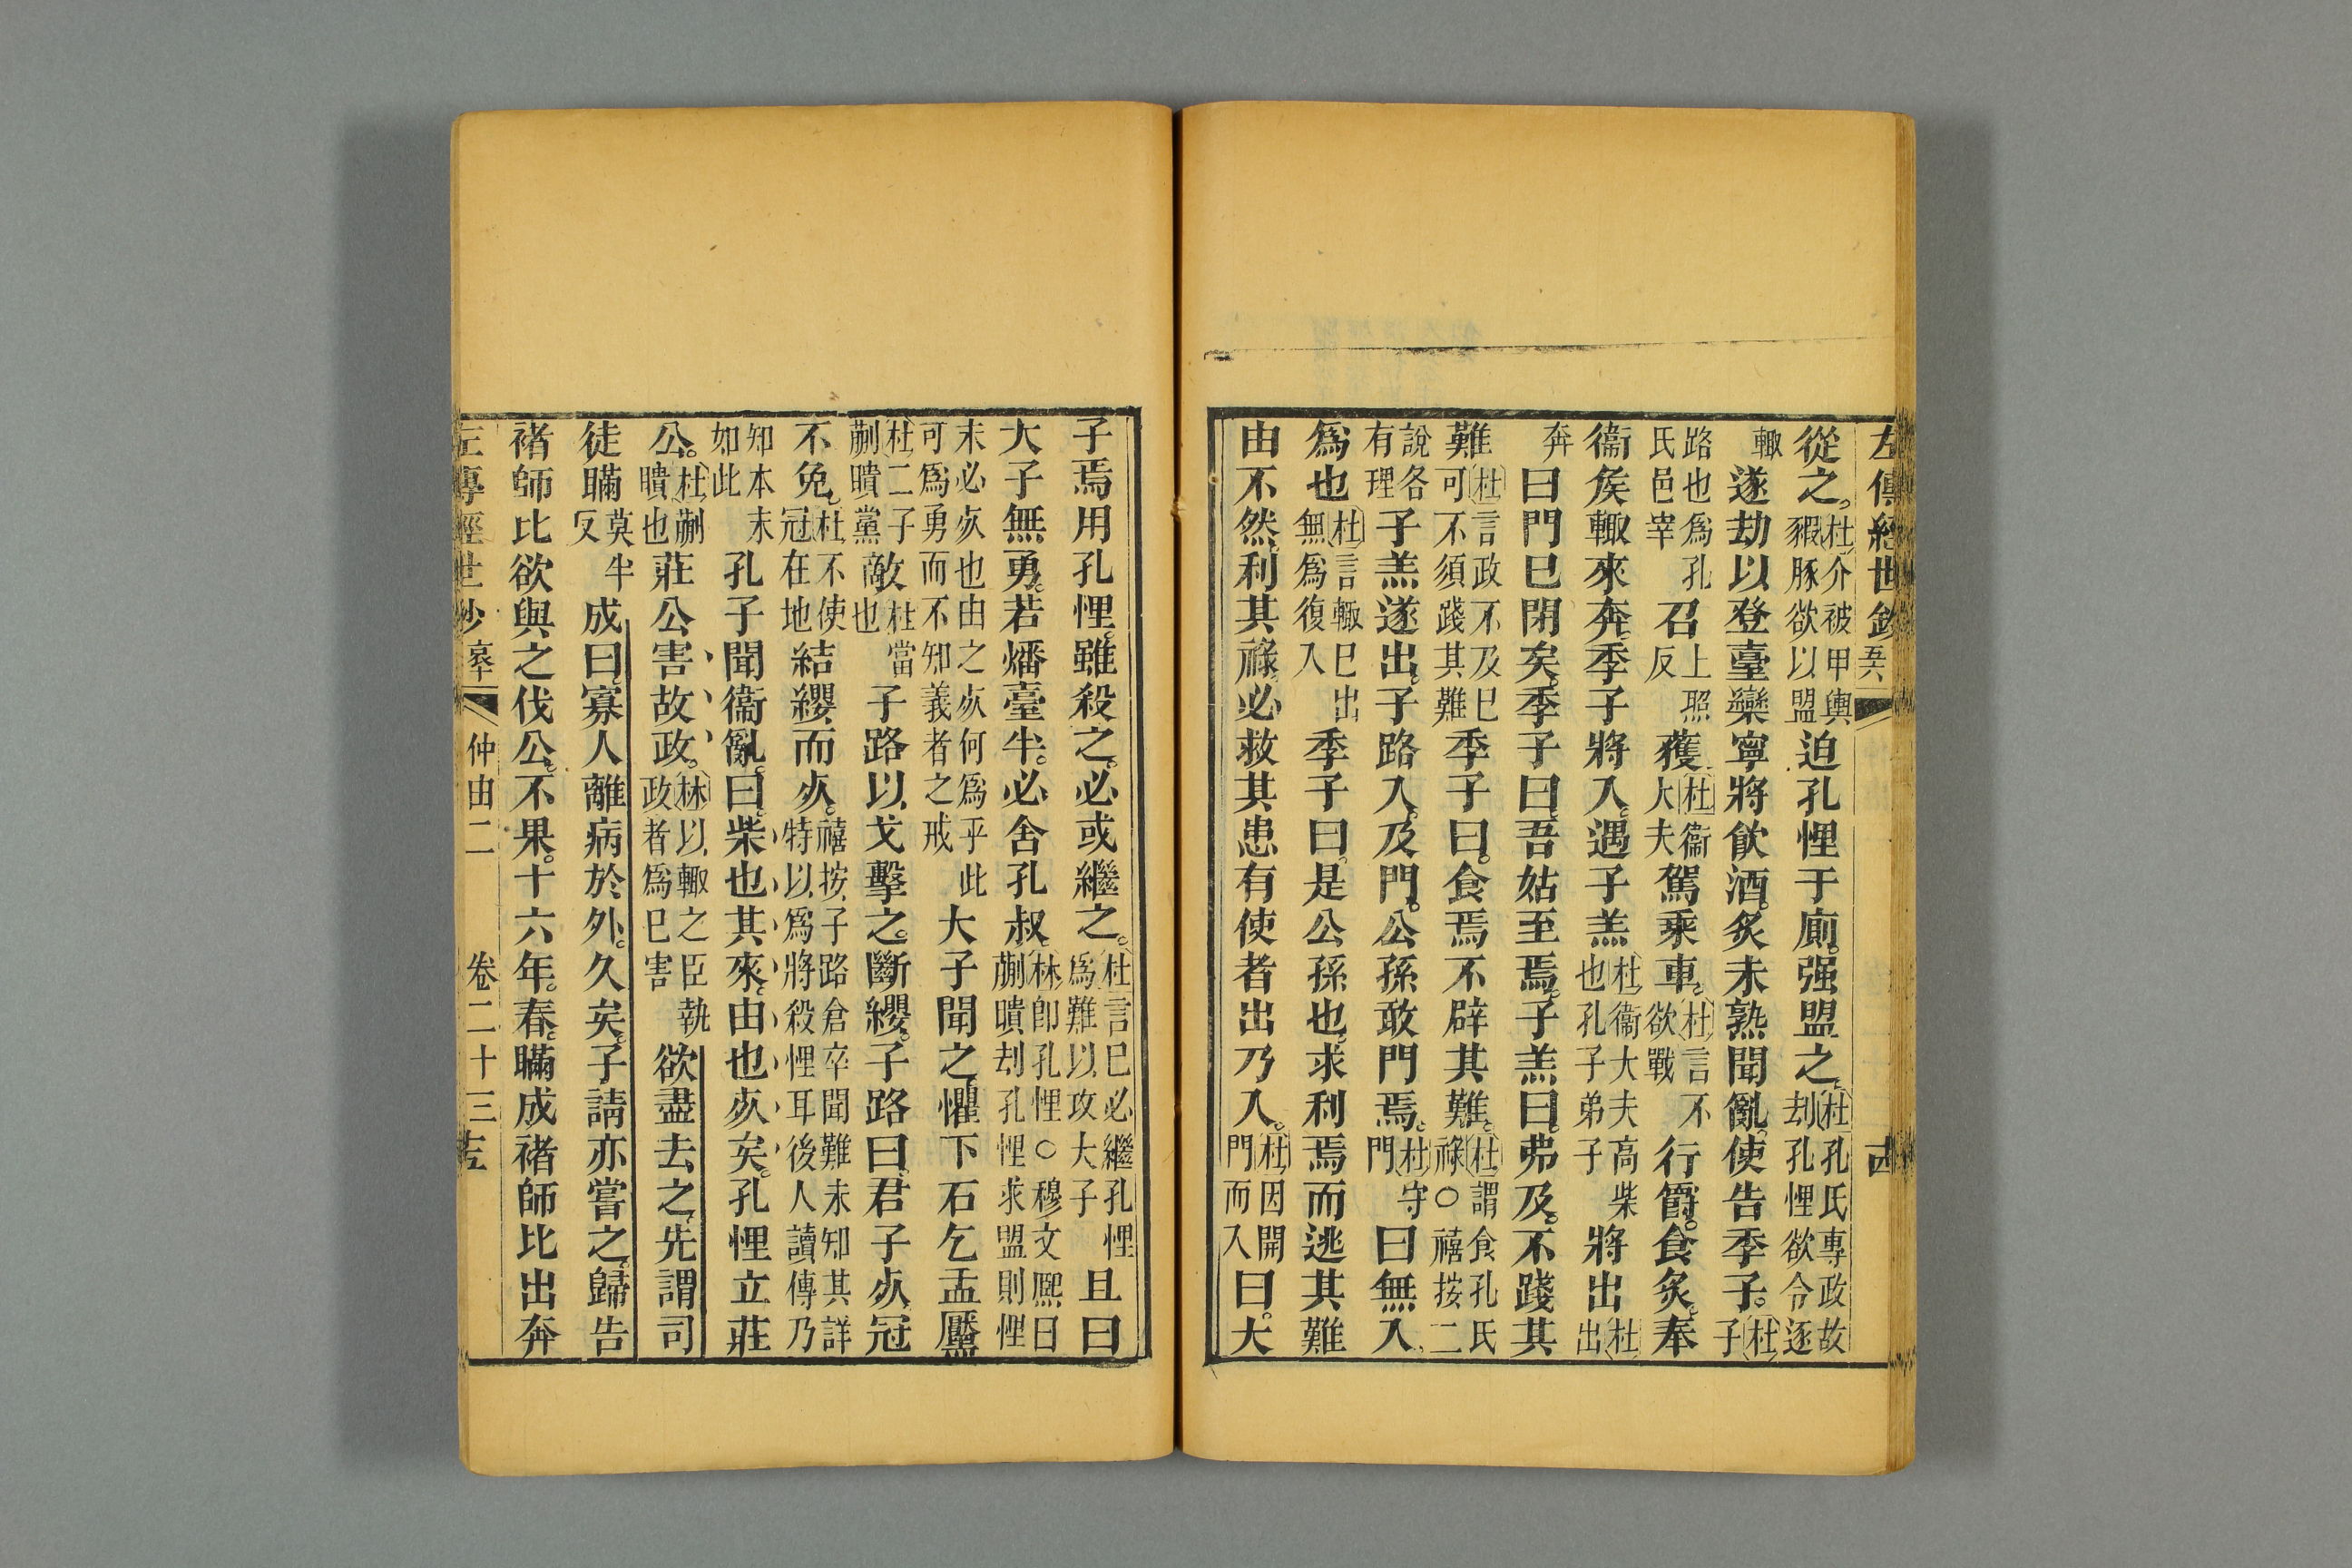 左傳經世鈔
從之。杜介被甲輿豭豚欲以盟迫孔悝于廁。强盟之。杜孔氏專政故劫孔悝欲令逐
輙遂劫以登臺。欒寧將飲酒。炙未熟聞亂。使告季子。杜子
路也爲孔氏邑宰召上照反獲杜衞大夫駕乘車。杜言不欲戰行爵。食炙。奉
衞矦輙來奔。季子將入。遇子羔杜衞大夫高柴也孔子弟子將出杜出
奔曰門巳閉矣。季子曰。吾姑至焉。子羔曰。弗及。不踐其
難杜言政不及巳可不須踐其難季子曰。食焉不辟其難。杜謂食孔氏祿○禧按二
說各有理子羔遂出。子路入。及門。公孫敢門焉。杜守門曰無入
爲也杜言輙巳出無爲復入季子曰。是公孫也。求利焉而逃其難
由不然。利其祿。必救其患有使者出乃入。杜因開門而入曰。大
子焉用孔悝。雖殺之。必或繼之。杜言巳必繼孔悝爲難以攻大子且曰
大子無勇。若燔臺半。必舍孔叔。林卽孔悝○穆文熈曰蒯聵刦孔悝求盟則悝
未必㱙也由之㱙何爲乎此可爲勇而不知義者之戒大子聞之懼下石乞盂黶
杜二子蒯聵黨敵杜當也子路以戈擊之。斷纓。子路曰君子㱙冠
不免。杜不使冠在地結纓而㱙。禧按子路倉卒聞難未知其詳特以爲將殺悝耳後人讀傳乃
知本末如此孔子聞衞亂。曰。柴也其來。由也㱙矣。孔悝立莊
公。杜蒯聵也莊公害故政。林以輙之臣執政者爲巳害欲盡去之。先謂司
徒瞞莫半反成曰。寡人離病於外。久矣。子請亦嘗之。歸告
褚師比欲與之伐公。不果。十六年。春。瞞成褚師比出奔
仲由二　卷二十三